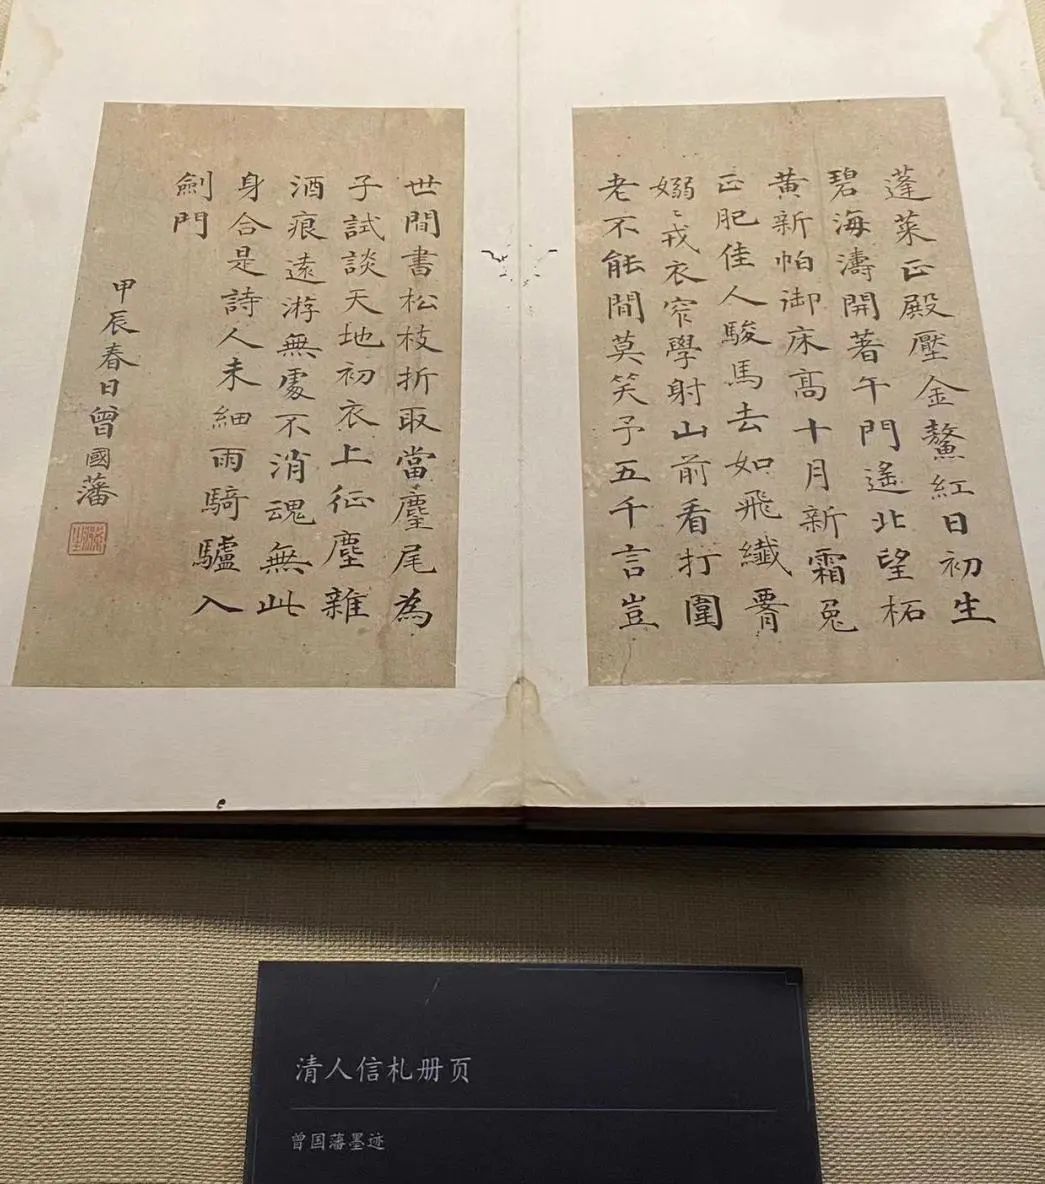 蓬萊正殿壓金鰲紅日初生
碧海濤開著午門遙北望柘
黃新帕御床高十月新霜兔
正肥佳人駿馬去如飛纖腰
嫋〻戎衣窄學射山前看打圍
老不能間莫笑予五千言豈
世間書松枝折取當麈尾為
子試談天地初衣上征塵雜
酒痕遠游無處不消魂無此
身合是詩人未細雨騎驢入
劍門
甲辰春日曾國藩
清人信札册页
曾国藩墨迹